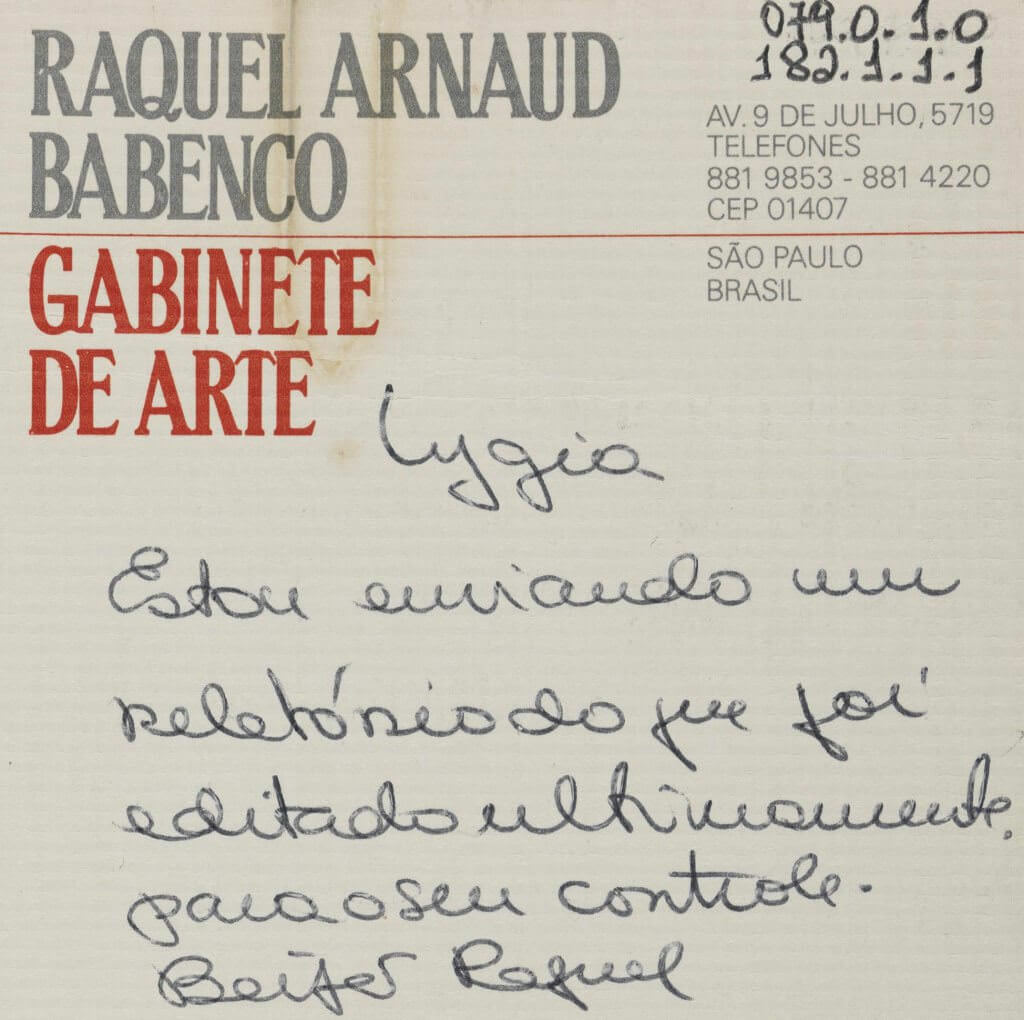 RAQUEL ARNAUD
BABENCO
GABINETE
DE ARTE
079.0.1.0
182.1.1.1
AV. 9 DE JULHO, 5719
TELEFONES
881 9853 - 881 4220
CEP 01407
SÃO PAULO
BRASIL
Lygia
Estou enviando um
relatório do que foi
editado ultimamente,
para o seu controle.
Beijos Raquel